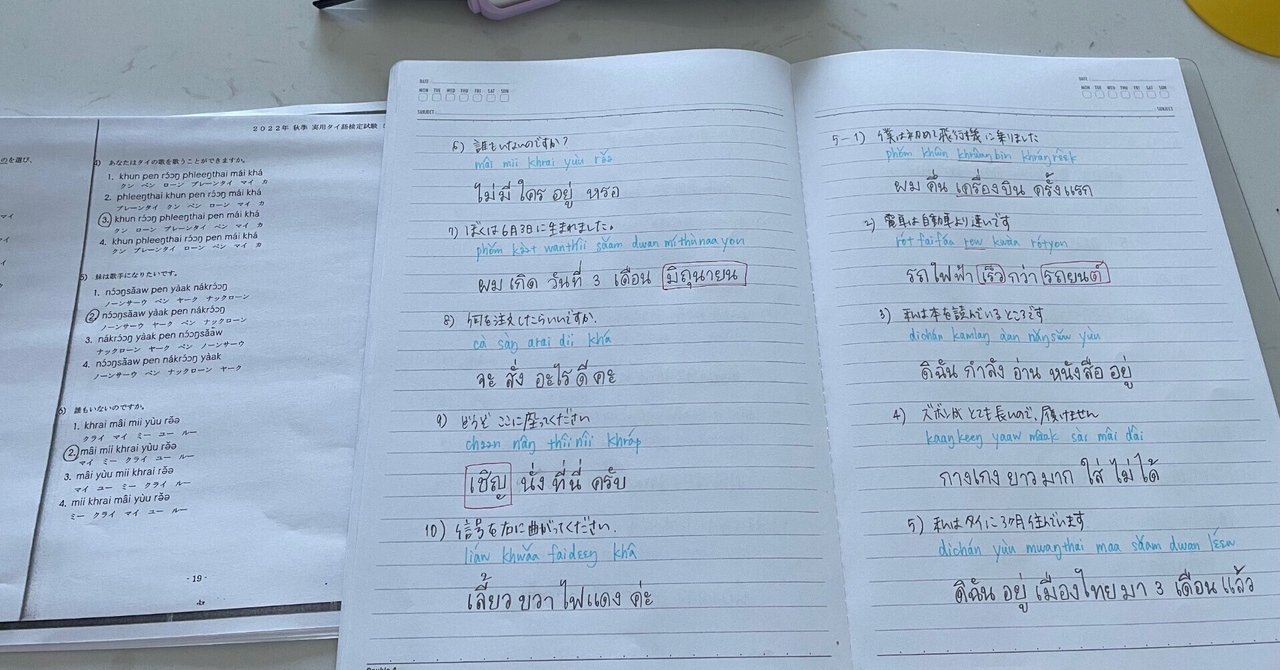 2022年 秋季 実用タイ語検定試験
のを選び、
4) あなたはタイの歌を歌うことができますか。
1. khun pen rɔ́ɔŋ phleeŋthai mái khá
クン ペン ローン プレーンタイ マイ カ
2. phleeŋthai khun pen rɔ́ɔŋ mái khá
プレーンタイ クン ペン ローン マイ カ
3. khun rɔ́ɔŋ phleeŋthai pen mái khá
クン ローン プレーンタイ ペン マイ カ
4. khun phleeŋthai rɔ́ɔŋ pen mái khá
クン プレーンタイ ローン ペン マイ カ
5) 妹は歌手になりたいです。
1. nɔ́ɔŋsǎaw pen yàak nákrɔ́ɔŋ
ノーンサーウ ペン ヤーク ナックローン
2. nɔ́ɔŋsǎaw yàak pen nákrɔ́ɔŋ
ノーンサーウ ヤーク ペン ナックローン
3. nákrɔ́ɔŋ yàak pen nɔ́ɔŋsǎaw
ナックローン ヤーク ペン ノーンサーウ
4. nɔ́ɔŋsǎaw pen nákrɔ́ɔŋ yàak
ノーンサーウ ペン ナックローン ヤーク
6) 誰もいないのですか。
1. khrai mâi mii yùu rə̌ə
クライ マイ ミー ユー ルー
2. mâi mii khrai yùu rə̌ə
マイ ミー クライ ユー ルー
3. mâi yùu mii khrai rə̌ə
マイ ユー ミー クライ ルー
4. mii khrai mâi yùu rə̌ə
ミー クライ マイ ユー ルー
- 19 -
DATE
MON TUE WED THU FRI SAT SUN
SUBJECT
6) 誰もいないのですか?
mâi mii khrai yùu rə̌ə
ไม่มี ใคร อยู่ หรอ
7) ぼくは6月3日に生まれました。
phǒm kə̀ət wanthîi sǎam dwan míthùnaayon
ผม เกิด วันที่ 3 เดือน มิถุนายน
8) 何を注文したらいいですか.
cà sàŋ arai dii khá
จะ สั่ง อะไร ดี คะ
9) どうぞ ここに座ってください
chəən nâŋ thîi nîi khráp
เชิญ นั่ง ที่นี่ ครับ
10) 信号を右に曲がってください.
líaw khwǎa faideeŋ khâ
เลี้ยว ขวา ไฟแดง ค่ะ
DATE
MON TUE WED THU FRI SAT SUN
SUBJECT
5-1) 僕は初めて飛行機に乗りました
phǒm khûn khrûaŋbin kháŋrêek
ผม คื่น เครื่องบิน ครั้งแรก
2) 電車は自動車より速いです
rótfaifáa rew kwàa rótyon
รถไฟฟ้า เร็ว กว่า รถยนต์
3) 私は本を読んでいるところです
dichán kamlaŋ àan nǎŋsǔw yùu
ดิฉัน กำลัง อ่าน หนังสือ อยู่
4) ズボンがとても長いので、履けません
kaaŋkeeŋ yaaw mâak sài mâi dâi
กางเกง ยาว มาก ใส่ ไม่ได้
5) 私はタイに3ヶ月住んでいます
dichán yùu mwaŋthai maa sǎam dwan lɛ́ɛw
ดิฉัน อยู่ เมืองไทย มา 3 เดือน แล้ว